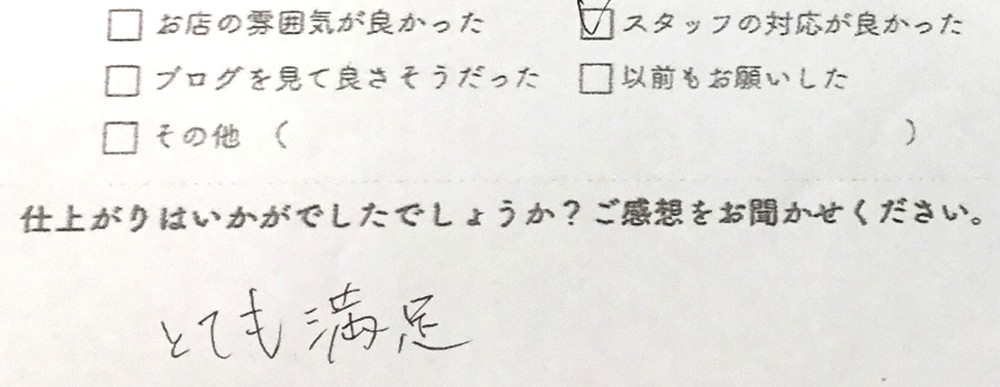 □ お店の雰囲気が良かった ☑ スタッフの対応が良かった
□ ブログを見て良さそうだった □ 以前もお願いした
□ その他 ( )
仕上がりはいかがでしたでしょうか?ご感想をお聞かせください。
とても満足